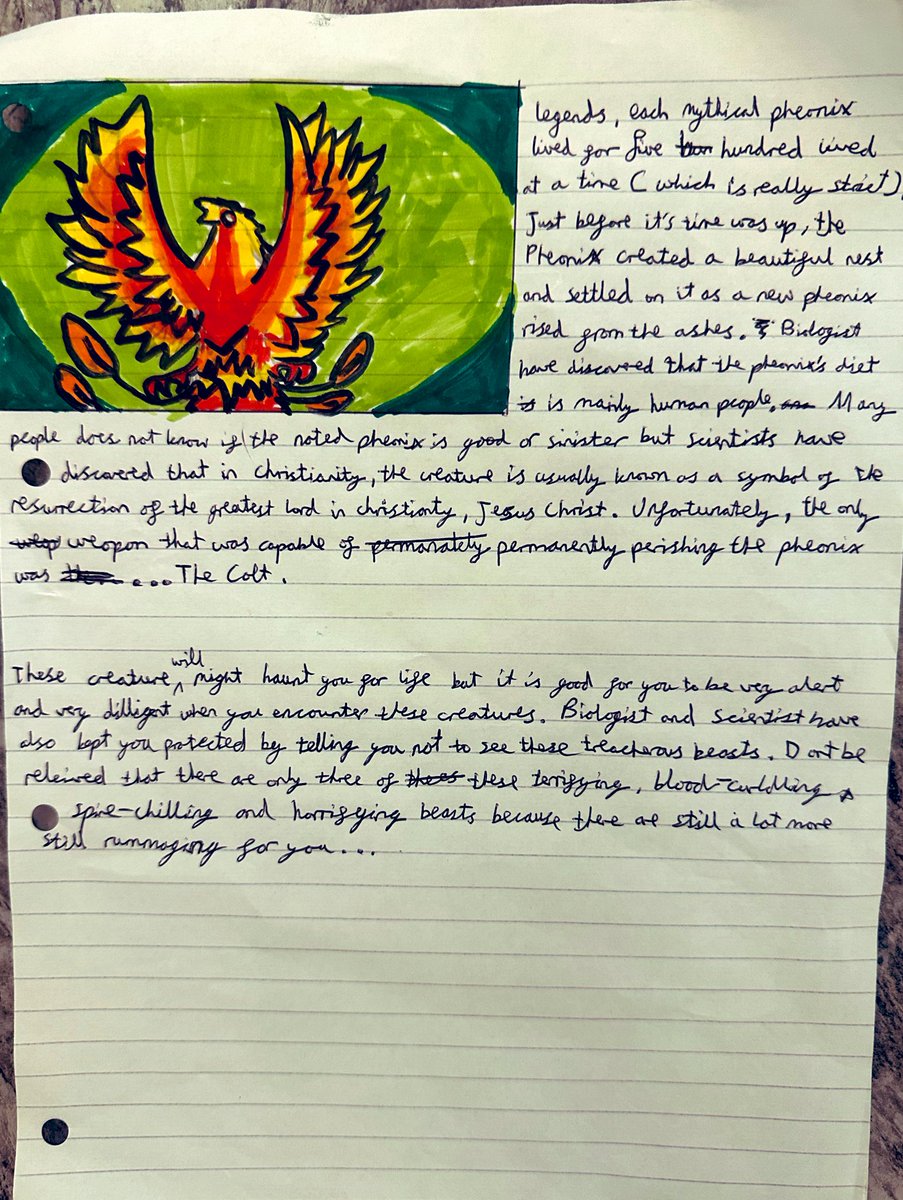 legends, each mythical pheonix
lived for five hundred lived
at a time (which is really start)
Just before it's time was up, the
Pheonix created a beautiful nest
and settled on it as a new pheonix
rised from the ashes. Biologist
have discovered that the pheonix's diet
is mainly human people. Many
people does not know if the noted pheonix is good or sinister but scientists have
discovered that in christianity, the creature is usually known as a symbol of the
resurrection of the greatest lord in christianty, Jesus Christ. Unfortunately, the only
weopon that was capable of permanently perishing the pheonix
was ... The Colt.
These creature will might haunt you for life but it is good for you to be very alert
and very dilligent when you encounter these creatures. Biologist and scientist have
also kept you protected by telling you not to see these treacherous beasts. Dont be
releived that there are only three of these terrifying, blood-curldling,
spine-chilling and horrifying beasts because there are still a lot more
still rummaging for you...